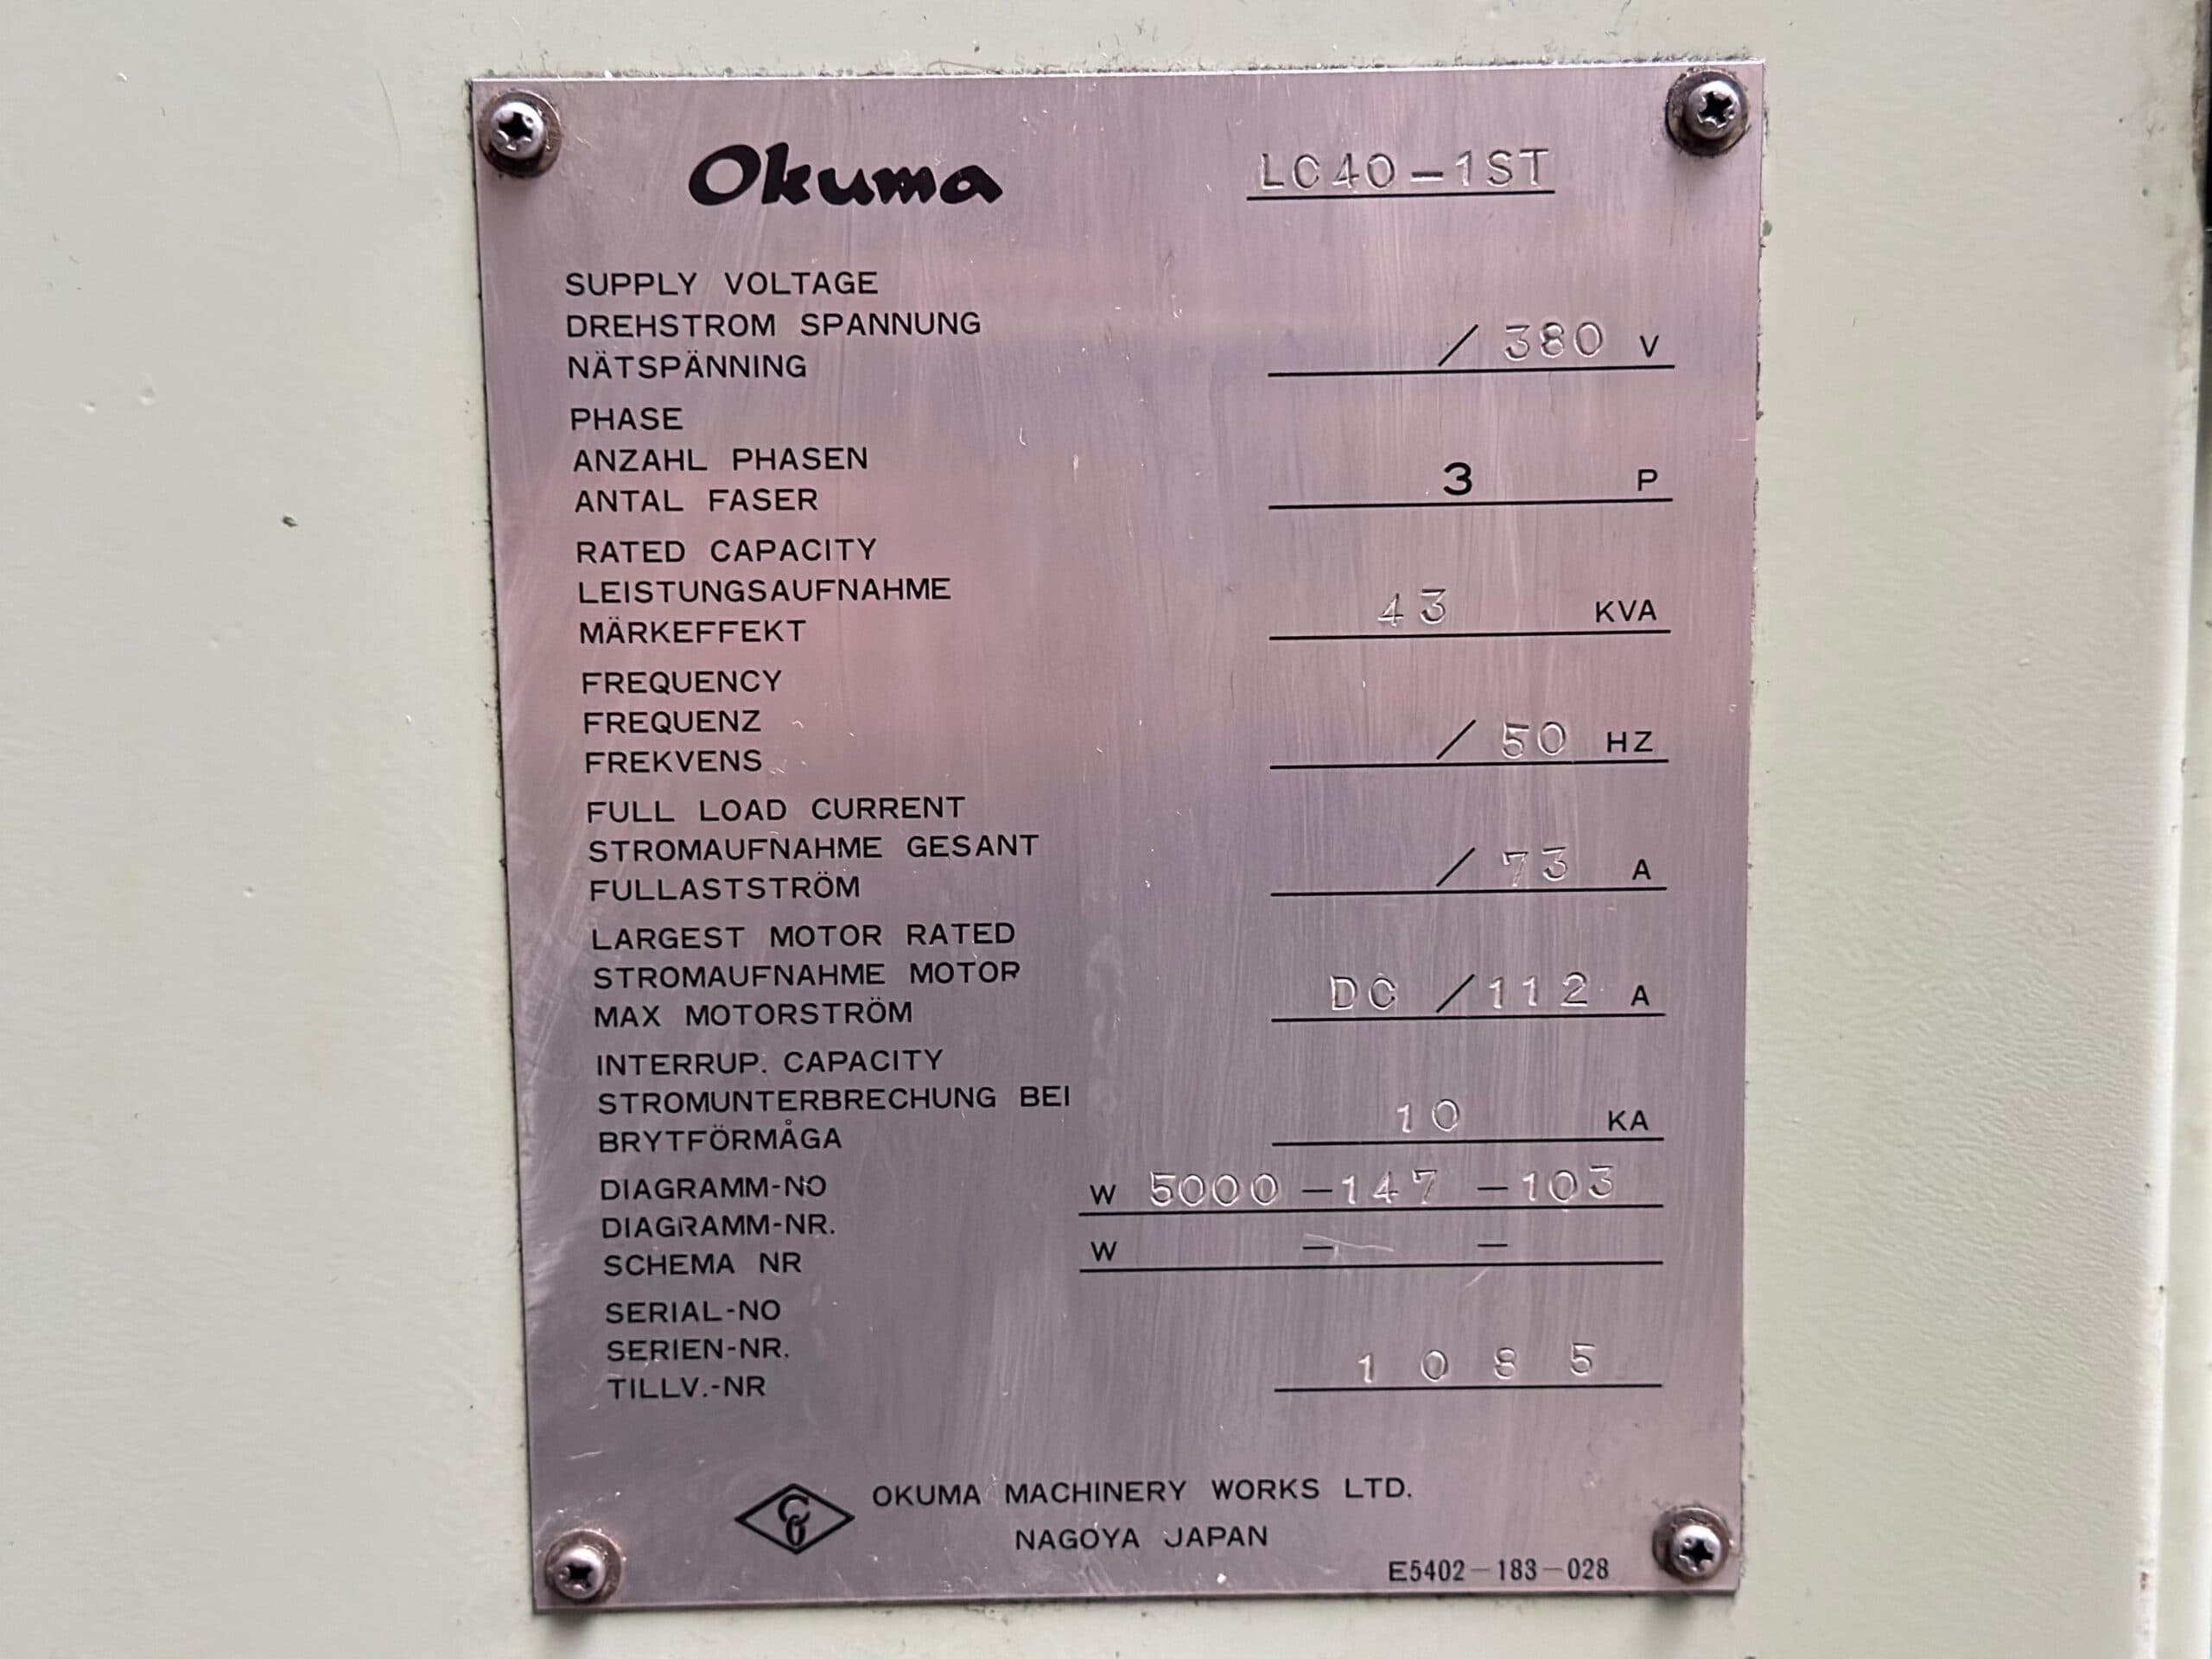 Okuma LC40-1ST
SUPPLY VOLTAGE
DREHSTROM SPANNUNG
NÄTSPÄNNING / 380 V
PHASE
ANZAHL PHASEN
ANTAL FASER 3 P
RATED CAPACITY
LEISTUNGSAUFNAHME
MÄRKEFFEKT 43 KVA
FREQUENCY
FREQUENZ
FREKVENS / 50 HZ
FULL LOAD CURRENT
STROMAUFNAHME GESANT
FULLASTSTRÖM / 73 A
LARGEST MOTOR RATED
STROMAUFNAHME MOTOR
MAX MOTORSTRÖM DC / 112 A
INTERRUP. CAPACITY
STROMUNTERBRECHUNG BEI
BRYTFÖRMÅGA 10 KA
DIAGRAMM-NO W 5000-147-103
DIAGRAMM-NR.
SCHEMA NR W - -
SERIAL-NO
SERIEN-NR.
TILLV.-NR 1 0 8 5
OKUMA MACHINERY WORKS LTD.
NAGOYA JAPAN
E5402-183-028